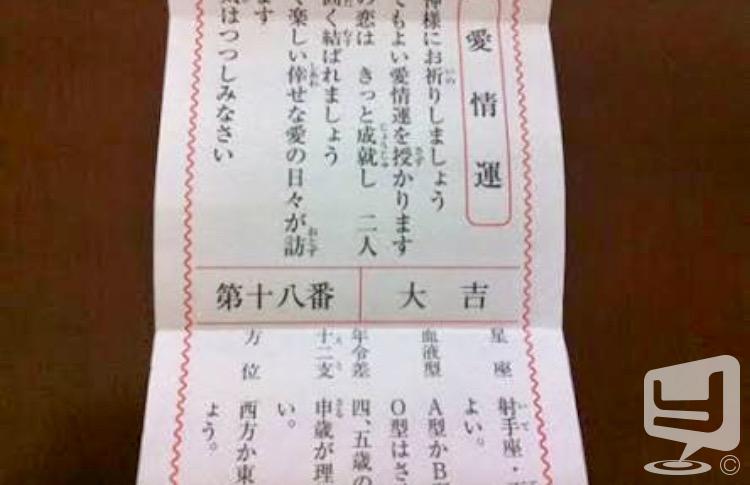 愛情運
神様にお祈りしましょう
てもよい愛情運を授かります
の恋は きっと成就し 二人
固く結ばれましょう
く楽しい倖せな愛の日々が訪
ます
気はつつしみなさい
大吉
第十八番
星座 射手座・
よい。
血液型 A型かB
O型はさ
年令差 四、五歳の
十二支 申歳が理
い。
方位 西方か東
ょう。